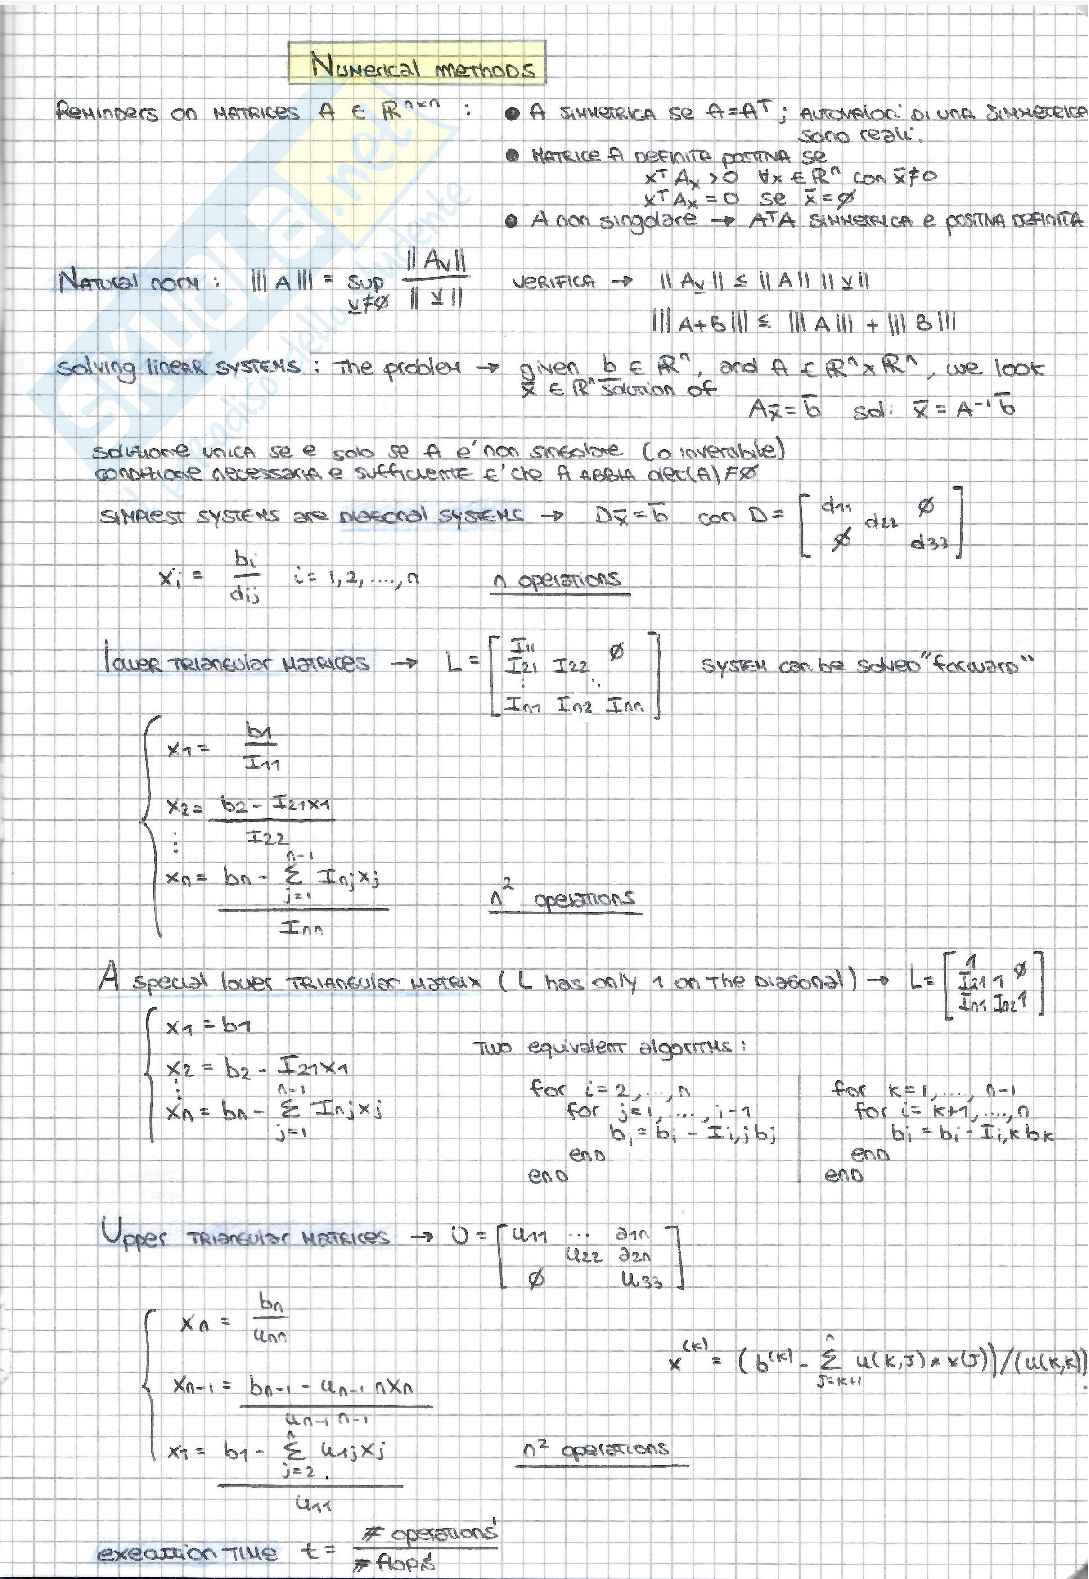 Numerical methods
Reminders on matrices A ∈ ℝⁿˣⁿ : • A simmetrica se A=Aᵀ ; autovalori di una simmetrica
sono reali.
• Matrice A definita positiva se
xᵀAx >0 ∀x ∈ ℝⁿ con x̄≠0
xᵀAx = 0 se x̄=∅
• A non singolare → AᵀA simmetrica e positiva definita
Natural norm : ||| A ||| = sup v≠∅ ||Av|| / ||v|| verifica → ||Av|| ≤ ||A|| ||v||
||| A+B ||| ≤ ||| A ||| + ||| B |||
Solving linear systems : the problem → given b ∈ ℝⁿ, and A ∈ ℝⁿxℝⁿ, we look
x̄ ∈ ℝⁿ solution of
Ax̄ = b̄ sol: x̄ = A⁻¹b̄
soluzione unica se e solo se A e' non singolare (o invertibile)
condizione necessaria e sufficiente e' che A abbia det(A)≠∅
simplest systems are diagonal systems → Dx̄ = b̄ con D = [d11 ∅ d22 ∅ d33]
xi = bi / dij i = 1,2,....,n n operations
lower triangular matrices → L = [I11 ∅ I21 I22 ⋮ ⋱ In1 In2 Inn] system can be solved "forward"
x1 = b1 / I11
x2 = b2 - I21x1 / I22
⋮
xn = bn - Σ j=1 n-1 Injxj / Inn n² operations
A special lower triangular matrix (L has only 1 on the diagonal) → L = [1 ∅ I21 1 In1 In2 1]
x1 = b1
two equivalent algoritms :
x2 = b2 - I21x1
⋮
xn = bn - Σ j=1 n-1 Injxj
for i=2,...,n
for j=1,...,i-1
bi = bi - Ii,jbj
end
end
for k=1,...,n-1
for i=k+1,...,n
bi = bi - Ii,kbk
end
end
Upper triangular matrices → U = [u11 ... a1n u22 a2n ∅ u33]
xn = bn / unn
x⁽ᵏ⁾ = (b⁽ᵏ⁾ - Σ J=k+1 n u(k,J) * x(J))/(u(k,k))
xn-1 = bn-1 - un-1 nxn / un-1 n-1
x1 = b1 - Σ j=2 n u1jxj / u11 n² operations
execution time t = # operations' / # flops'
SKUOLA.net